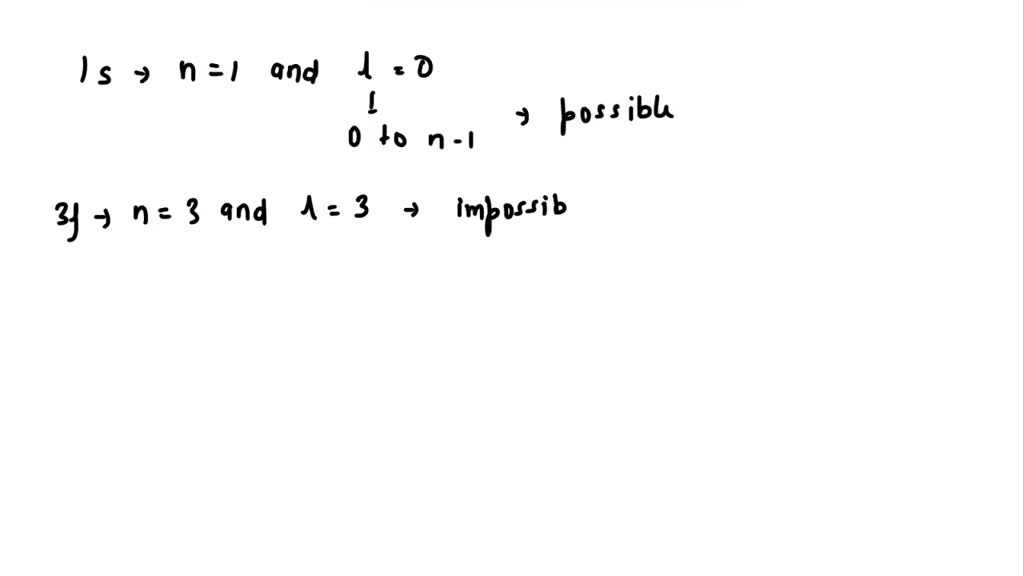 1s → n = 1 and l = 0
↓
0 to n-1 → possible
3f → n = 3 and l = 3 → impossib